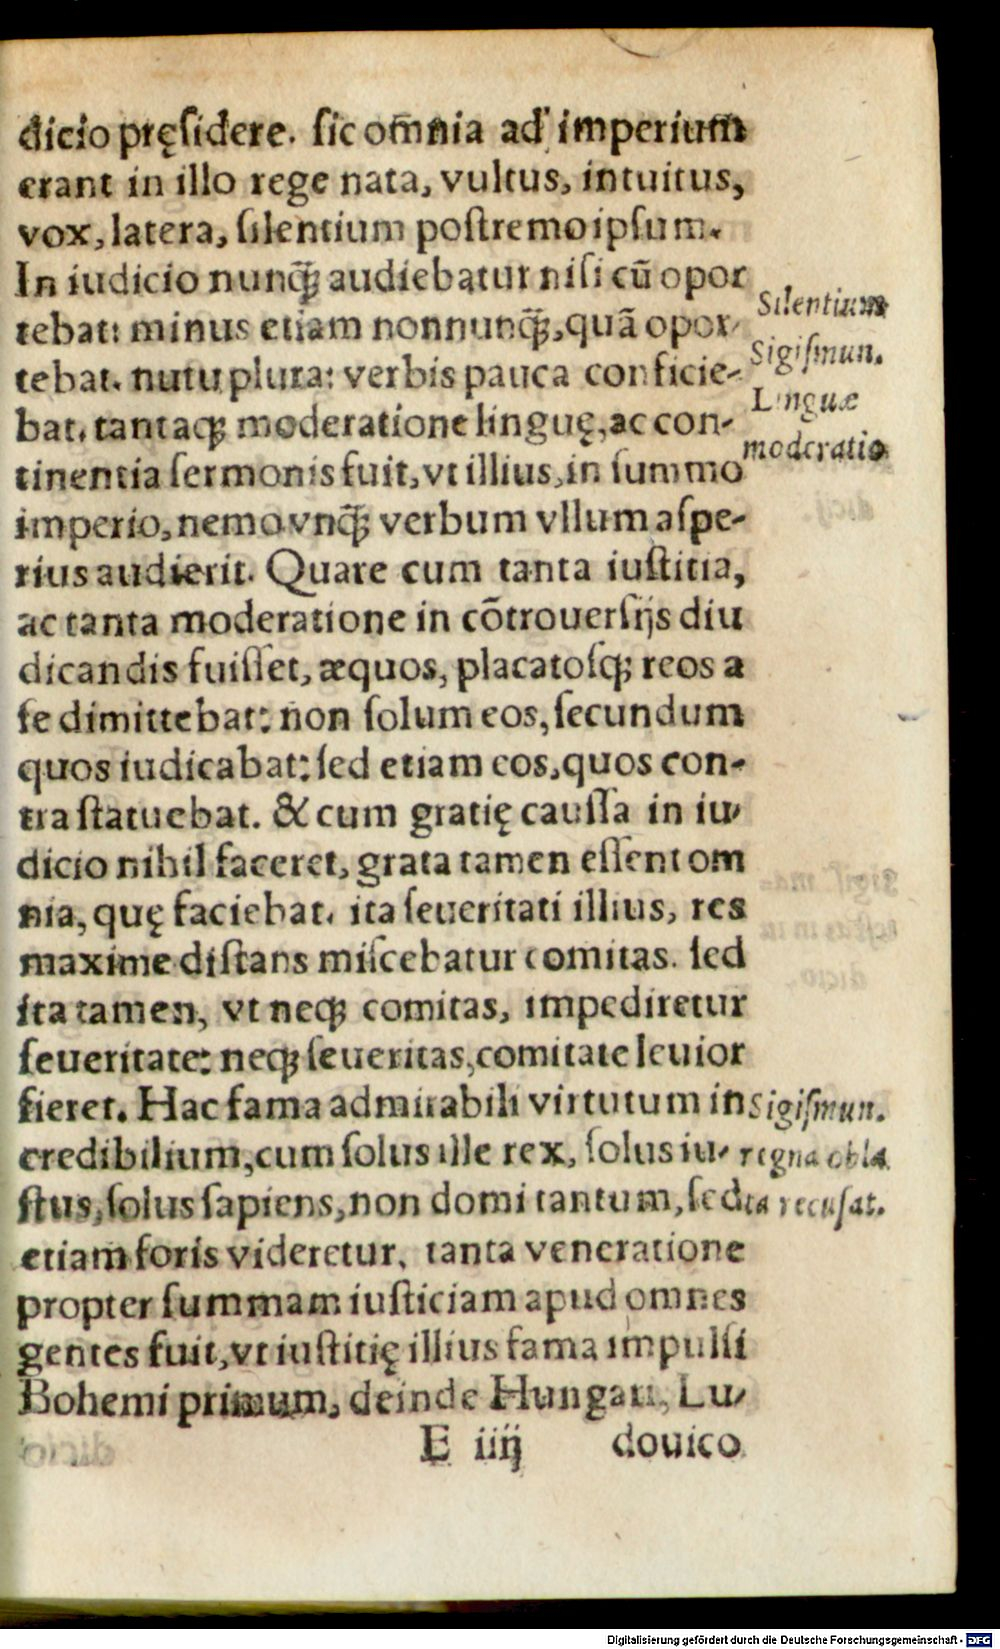 dicio pręſidere. ſic om̃nia ad imperium
erant in illo rege nata, vultus, intuitus,
vox, latera, ſilentium poſtremo ipſum.
In iudicio nunq̃ꝫ audiebatur niſi cũ opor
tebat: minus etiam nonnunq̃ꝫ, quã opor-
tebat. nutu plura: verbis pauca conficie-
bat. tantaqꝫ moderatione linguę, ac con-
tinentia ſermonis fuit, vt illius, in ſummo
imperio, nemo vnq̃ꝫ verbum vllum aſpe-
rius audierit. Quare cum tanta iuſtitia,
ac tanta moderatione in cõtrouerſijs diu
dicandis fuiſſet, æquos, placatoſqꝫ reos a
ſe dimittebat: non ſolum eos, ſecundum
quos iudicabat: ſed etiam eos, quos con-
tra ſtatuebat. & cum gratię cauſſa in iu-
dicio nihil faceret, grata tamen eſſent om
nia, quę faciebat. ita ſeueritati illius, res
maxime diſtans miſcebatur comitas. ſed
ita tamen, vt neqꝫ comitas, impediretur
ſeueritate: neqꝫ ſeueritas, comitate leuior
fieret. Hac fama admirabili virtutum in
credibilium, cum ſolus ille rex, ſolus iu-
ſtus, ſolus ſapiens, non domi tantum, ſed
etiam foris videretur, tanta veneratione
propter ſummam iuſticiam apud omnes
gentes fuit, vt iuſtitię illius fama impulſi
Bohemi primum, deinde Hungari, Lu-
E iiij douico
Silentium
Sigiſmun.
Linguæ
moderatio
Sigiſmun.
regna obla
ta recuſat.
Digitalisierung gefördert durch die Deutsche Forschungsgemeinschaft - DFG